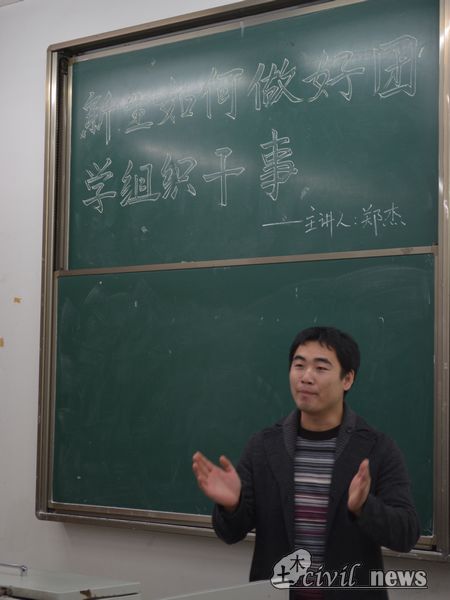 新生如何做好团
学组织干事
——主讲人:郑杰
土木 civil news